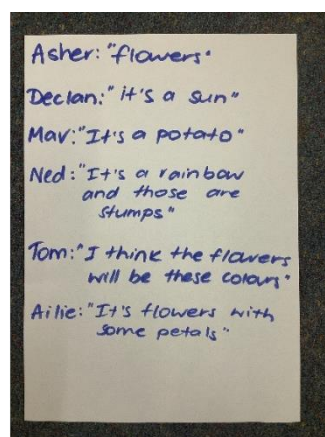 Asher: "flowers"
Declan: "it's a sun"
Mav: "It's a potato"
Ned: "It's a rainbow
and those are
stumps"
Tom: "I think the flowers
will be these colours"
Ailie: "It's flowers with
some petals"